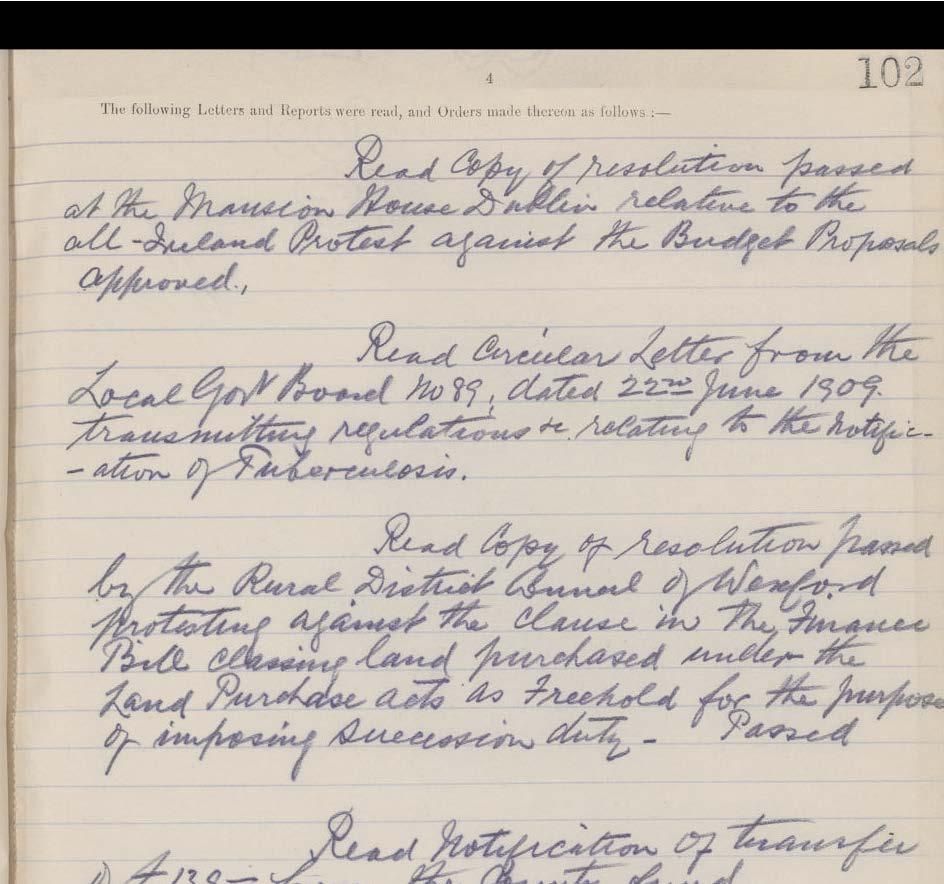 4
102
The following Letters and Reports were read, and Orders made thereon as follows :—
Read Copy of resolution passed
at the Mansion House Dublin relative to the
all-Ireland Protest against the Budget Proposals
approved.,
Read Circular Letter from the
Local Govt Board No 89, dated 22nd June 1909.
transmitting regulations &c. relating to the Notific-
-ation of Tuberculosis.
Read Copy of resolution passed
by the Rural District Council of Wexford
protesting against the clause in the Finance
Bill classing land purchased under the
Land Purchase acts as Freehold for the purpose
of imposing succession duty - Passed
Read Notification of transfer
from the County fund